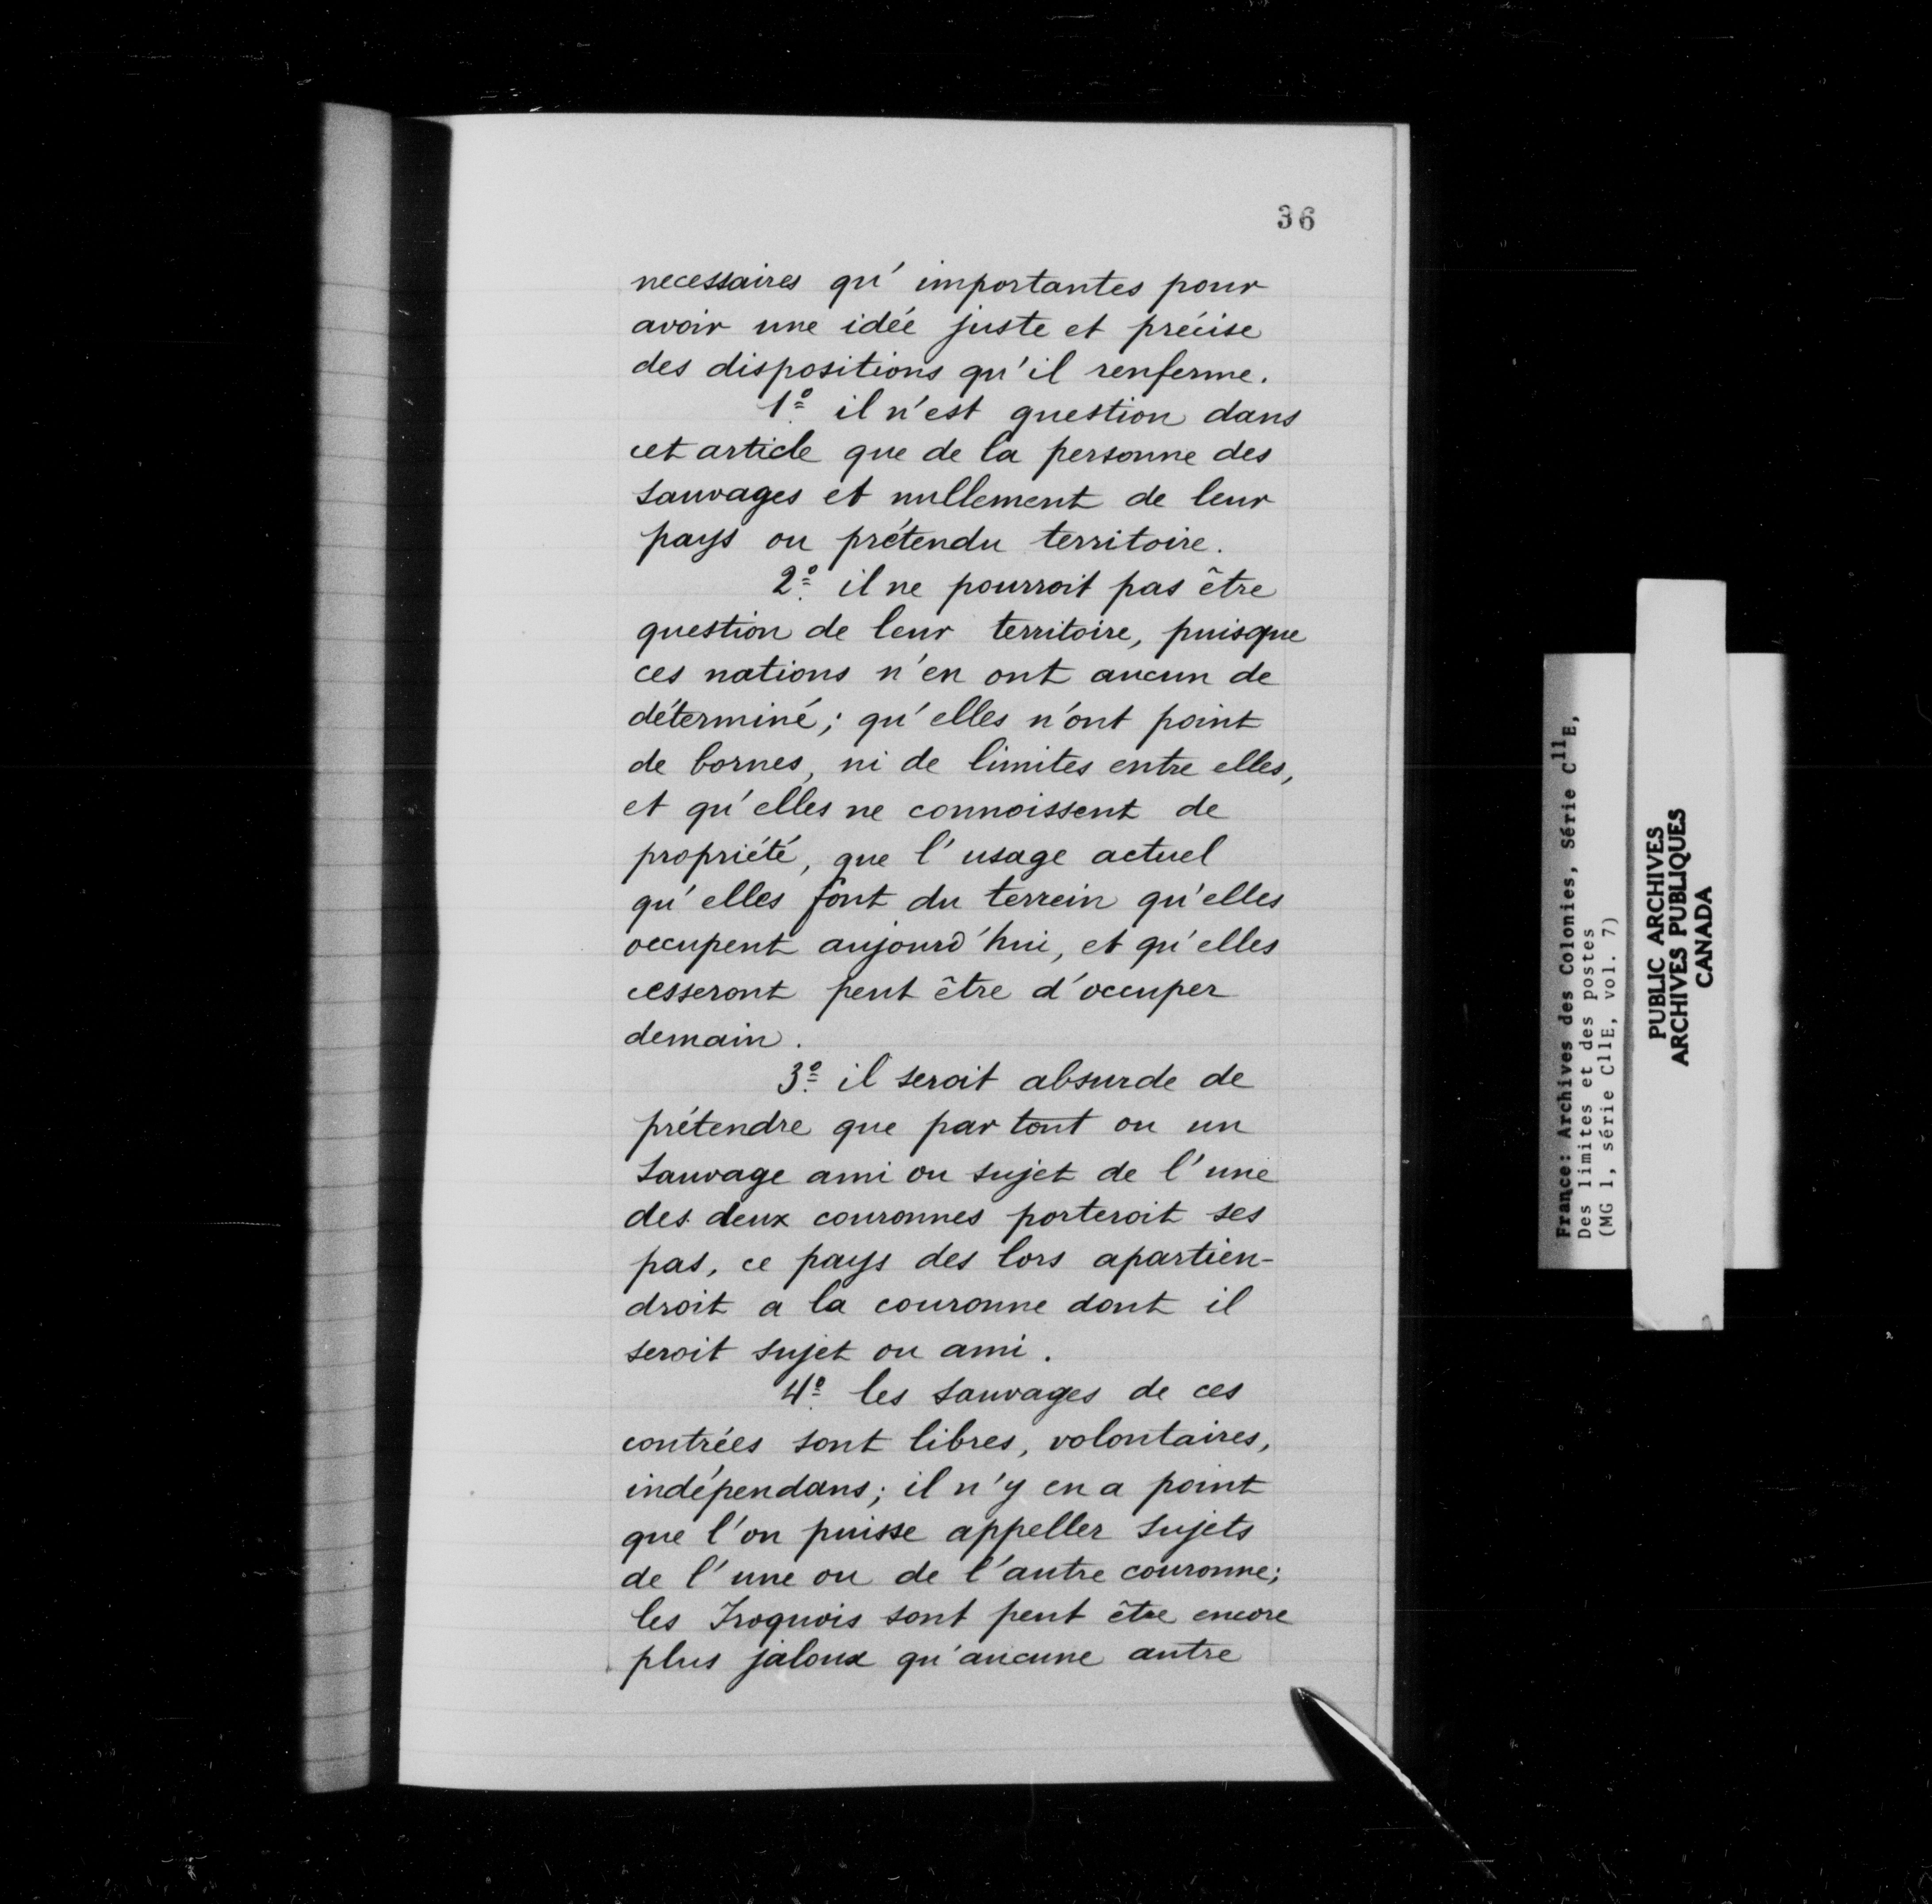 36
necessaires qu' importantes pour
avoir une idée juste et précise
des dispositions qu'il renferme.
1º il n'est question dans
cet article que de la personne des
sauvages et nullement de leur
pays ou prétendu territoire.
2º il ne pourroit pas être
question de leur territoire, puisque
ces nations n'en ont aucun de
déterminé; qu'elles n'ont point
de bornes, ni de limites entre elles,
et qu'elles ne connoissent de
propriété, que l'usage actuel
qu'elles font du terrein qu'elles
occupent aujourd'hui, et qu'elles
cesseront peut être d'occuper
demain.
3º il seroit absurde de
prétendre que par tout ou un
sauvage ami ou sujet de l'une
des deux couronnes porteroit ses
pas, ce pays des lors apartien-
droit a la couronne dont il
seroit sujet ou ami.
4º les sauvages de ces
contrées sont libres, volontaires,
indépendans; il n'y en a point
que l'on puisse appeller sujets
de l'une ou de l'autre couronne;
les Iroquois sont peut être encore
plus jaloux qu'aucune autre
France: Archives des Colonies, Série C11E,
Des limites et des postes
(MG 1, série C11E, vol. 7)
PUBLIC ARCHIVES
ARCHIVES PUBLIQUES
CANADA